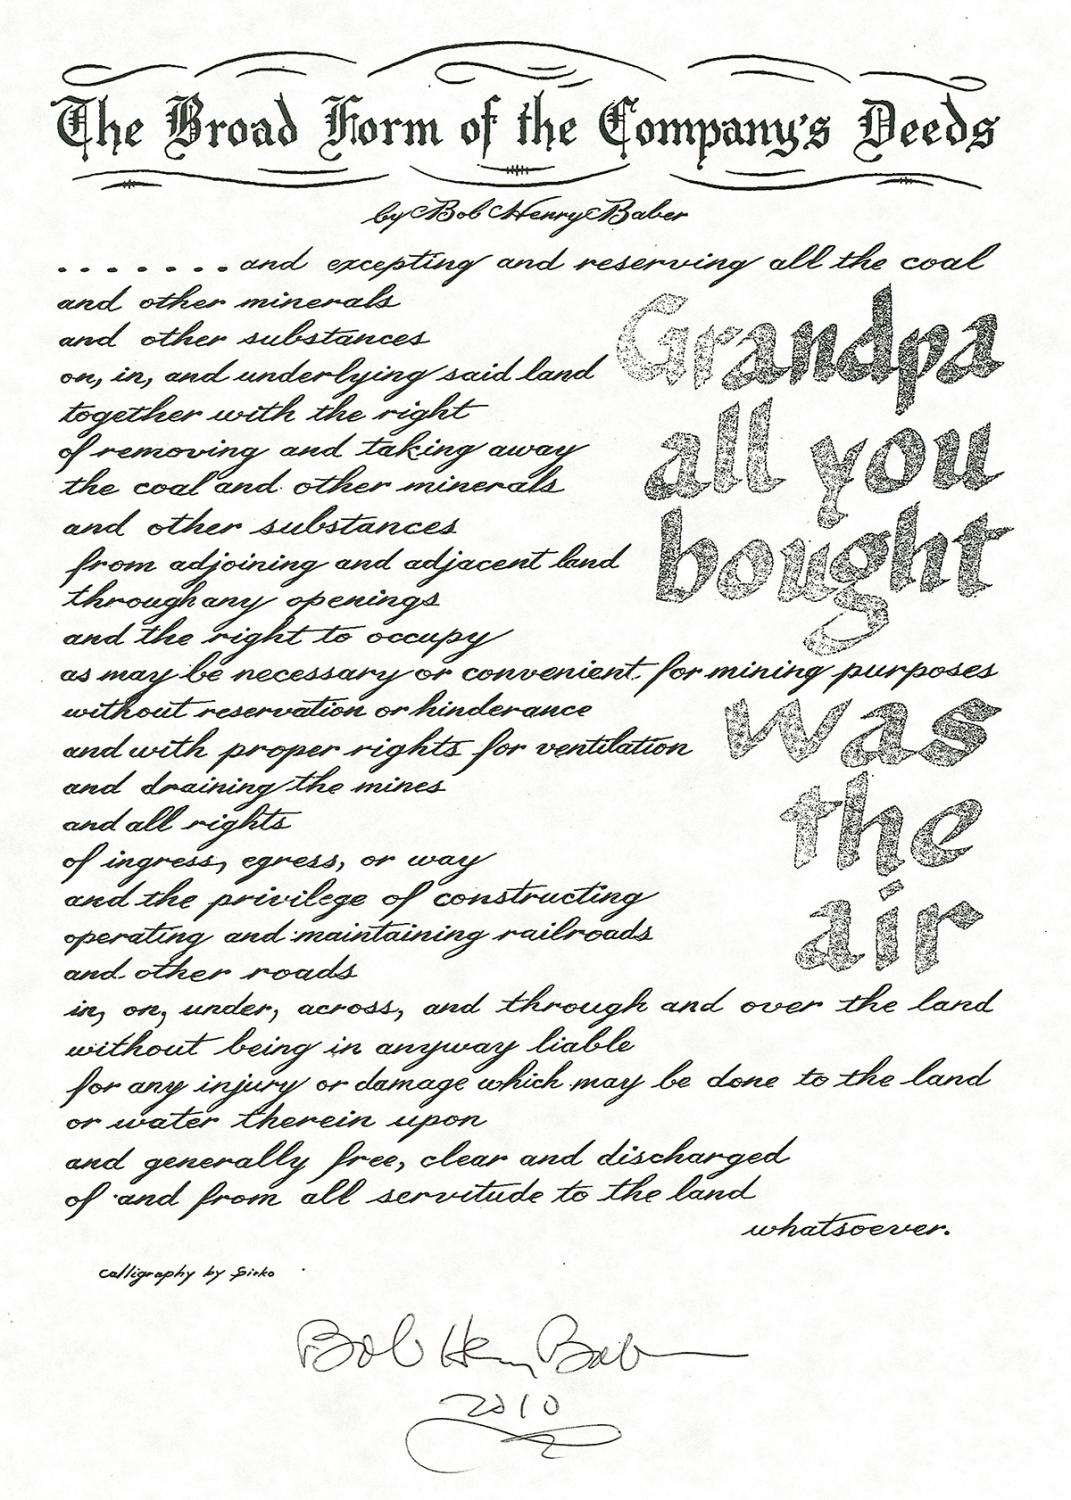 The Broad Form of the Company's Deeds
by Bob Henry Baber
. . . . . . . and excepting and reserving all the coal
and other minerals
and other substances
on, in, and underlying said land
together with the right
of removing and taking away
the coal and other minerals
and other substances
from adjoining and adjacent land
through any openings
and the right to occupy
as may be necessary or convenient for mining purposes
without reservation or hinderance
and with proper rights for ventilation
and draining the mines
and all rights
of ingress, egress, or way
and the privilege of constructing
operating and maintaining railroads
and other roads
in, on, under, across, and through and over the land
without being in anyway liable
for any injury or damage which may be done to the land
or water therein upon
and generally free, clear and discharged
of and from all servitude to the land
whatsoever.
Grandpa
all you
bought
was
the
air
Calligraphy by
Bob Henry Baber
2010